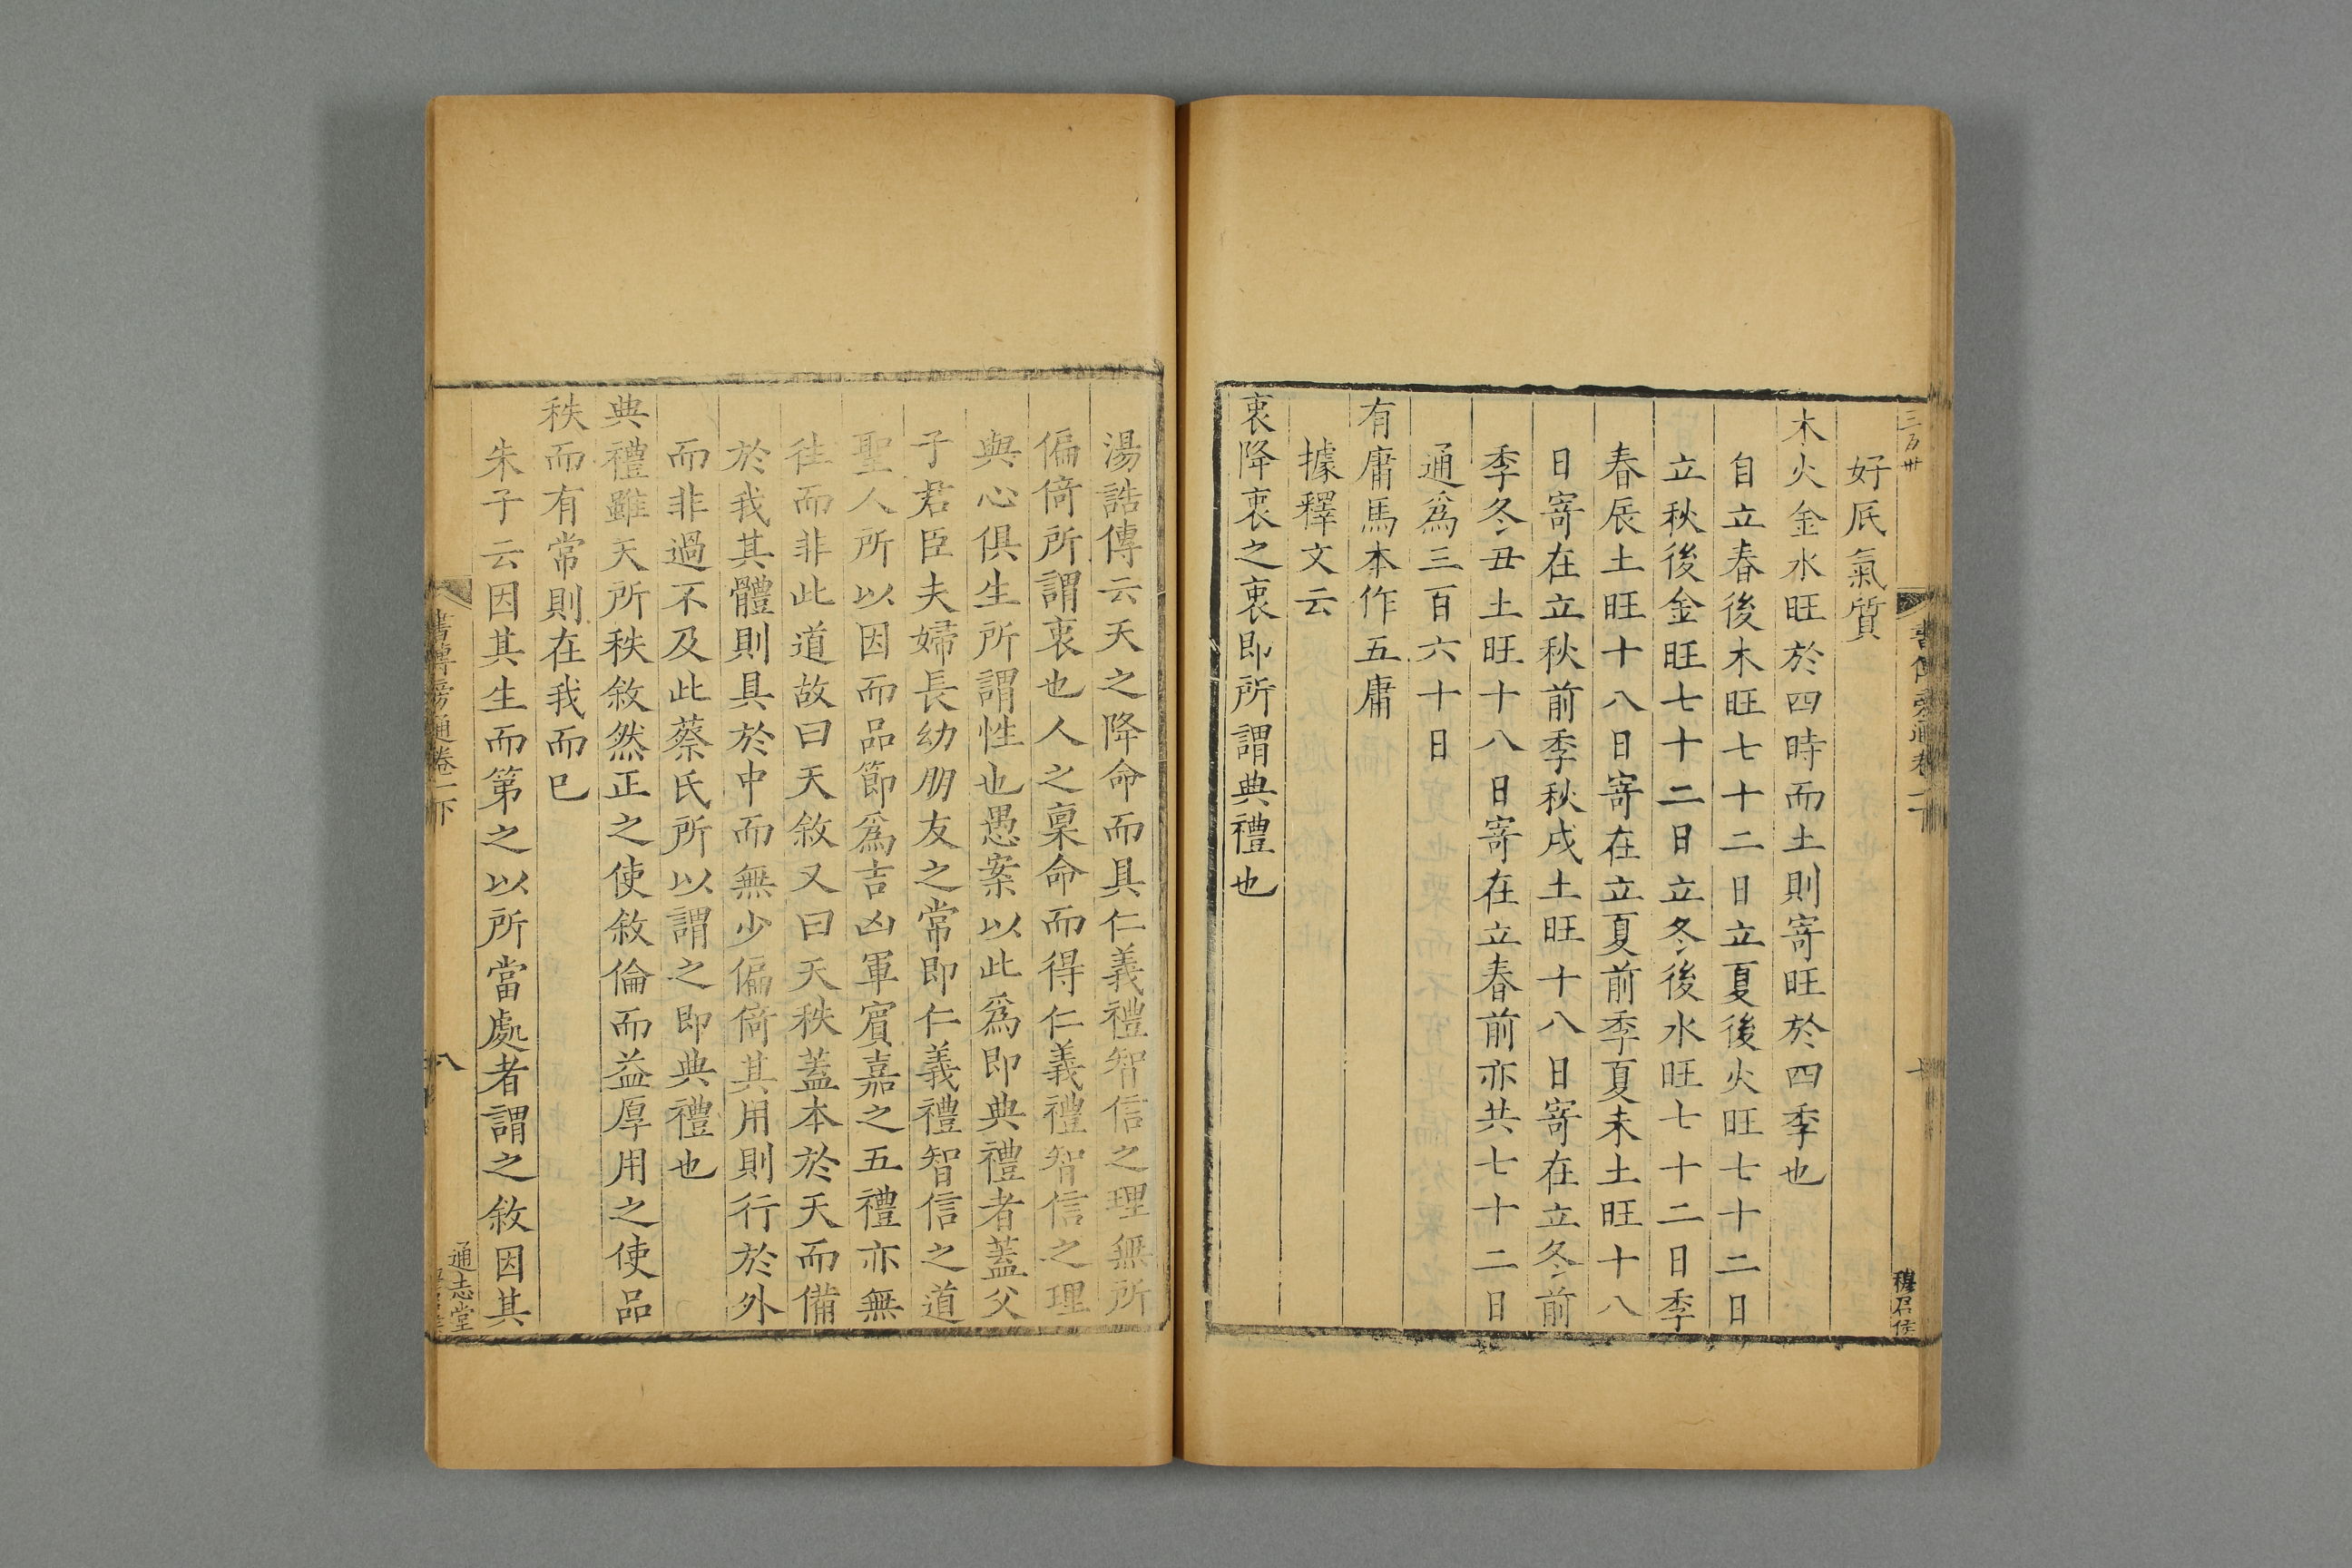 三百卅
好風氣質
木火金水旺於四時而土則寄旺於四季也
自立春後木旺七十二日立夏後火旺七十二日
立秋後金旺七十二日立冬後水旺七十二日季
春辰土旺十八日寄在立夏前季夏未土旺十八
日寄在立秋前季秋戌土旺十八日寄在立冬前
季冬丑土旺十八日寄在立春前亦共七十二日
通爲三百六十日
有庸馬本作五庸
據釋文云
衷降衷之衷即所謂典禮也
湯誥傳云天之降命而具仁義禮智信之理無所
偏倚所謂衷也人之稟命而得仁義禮智信之理
與心俱生所謂性也愚案以此爲即典禮者蓋父
子君臣夫婦長幼朋友之常即仁義禮智信之道
聖人所以因而品節爲吉凶軍賓嘉之五禮亦無
徃而非此道故曰天敘又曰天秩蓋本於天而備
於我其體則具於中而無少偏倚其用則行於外
而非過不及此蔡氏所以謂之即典禮也
典禮雖天所秩敘然正之使敘倫而益厚用之使品
秩而有常則在我而已
朱子云因其生而第之以所當處者謂之敘因其
書傳旁通卷一下
八
通志堂